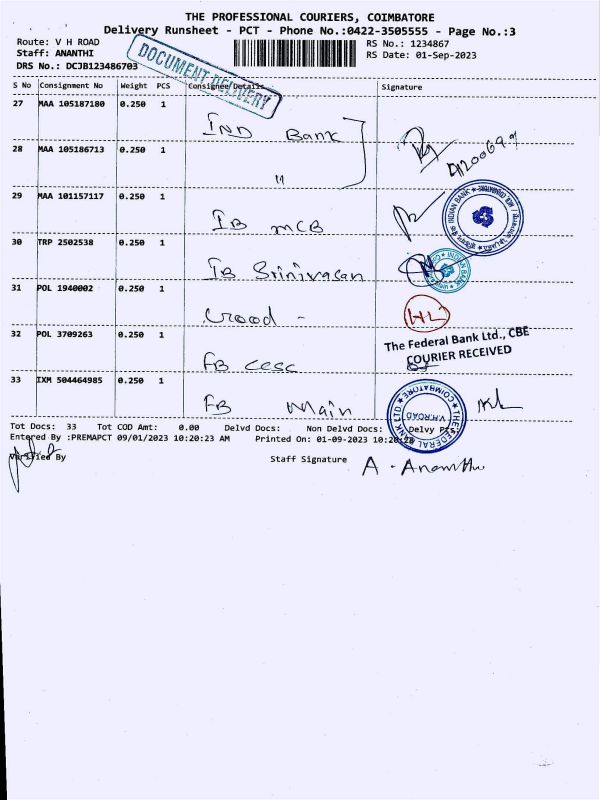 THE PROFESSIONAL COURIERS, COIMBATORE
Delivery Runsheet - PCT - Phone No.:0422-3505555 - Page No.:3
Route: V H ROAD RS No.: 1234867
Staff: ANANTHI RS Date: 01-Sep-2023
DRS No.: DCJB123486703
DOCUMENT DELIVERY
S No Consignment No Weight PCS Consignee/Details Signature
27 MAA 105187180 0.250 1 IND Bank
28 MAA 105186713 0.250 1 "
29 MAA 101157117 0.250 1 IB MCB
INDIAN BANK
30 TRP 2502538 0.250 1 IB Srinivasan
31 POL 1940002 0.250 1 HL
32 POL 3709263 0.250 1 FB
The Federal Bank Ltd., CBE
COURIER RECEIVED
33 IXM 504464985 0.250 1 FB Main
THE FEDERAL BANK LTD COIMBATORE
V.H.ROAD
Tot Docs: 33 Tot COD Amt: 0.00 Delvd Docs: Non Delvd Docs: Delvy Pts:
Entered By :PREMAPCT 09/01/2023 10:20:23 AM Printed On: 01-09-2023 10:20:28
Verified By Staff Signature A. Ananthi